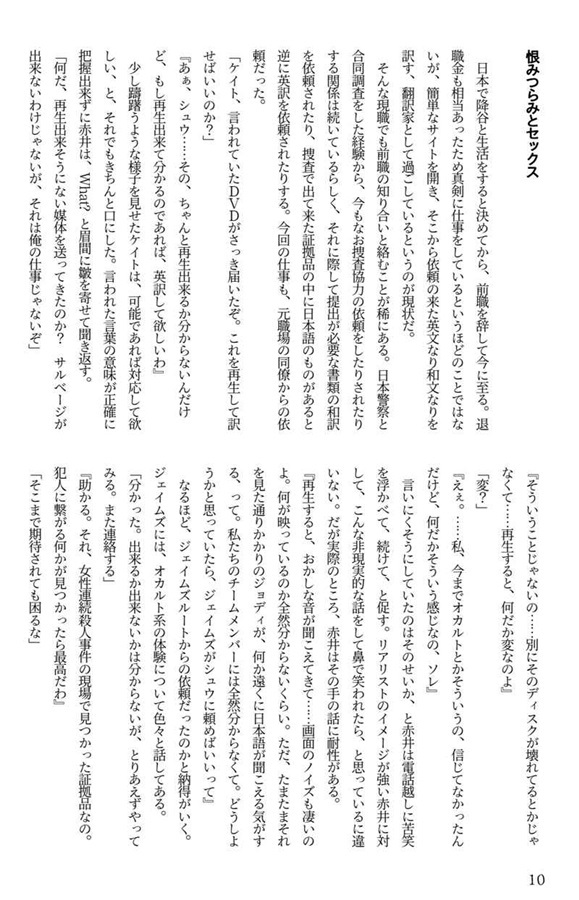 恨みつらみとセックス
　日本で降谷と生活をすると決めてから、前職を辞して今に至る。退
職金も相当あったため真剣に仕事をしているというほどのことではな
いが、簡単なサイトを開き、そこから依頼の来た英文なり和文なりを
訳す、翻訳家として過ごしているというのが現状だ。
　そんな現職でも前職の知り合いと絡むことが稀にある。日本警察と
合同調査をした経験から、今もなお捜査協力の依頼をしたりされたり
する関係は続いているらしく、それに際して提出が必要な書類の和訳
を依頼されたり、捜査で出て来た証拠品の中に日本語のものがあると
逆に英訳を依頼されたりする。今回の仕事も、元職場の同僚からの依
頼だった。
「ケイト、言われていたＤＶＤがさっき届いたぞ。これを再生して訳
せばいいのか？」
『あぁ、シュウ……その、ちゃんと再生出来るか分からないんだけ
ど、もし再生出来て分かるのであれば、英訳して欲しいわ』
　少し躊躇うような様子を見せたケイトは、可能であれば対応して欲
しい、と、それでもきちんと口にした。言われた言葉の意味が正確に
把握出来ずに赤井は、What? と眉間に皺を寄せて聞き返す。
「何だ、再生出来そうにない媒体を送ってきたのか？　サルベージが
出来ないわけじゃないが、それは俺の仕事じゃないぞ」
『そういうことじゃないの……別にそのディスクが壊れてるとかじゃ
なくて……再生すると、何だか変なのよ』
「変？」
『えぇ。……私、今までオカルトとかそういうの、信じてなかったん
だけど、何だかそういう感じなの、ソレ』
　言いにくそうにしていたのはそのせいか、と赤井は電話越しに苦笑
を浮かべて、続けて、と促す。リアリストのイメージが強い赤井に対
して、こんな非現実的な話をして鼻で笑われたら、と思っているに違
いない。だが実際のところ、赤井はその手の話に耐性がある。
『再生すると、おかしな音が聞こえてきて……画面のノイズも凄いの
よ。何が映っているのか全然分からないくらい。ただ、たまたまそれ
を見た通りかかりのジョディが、何か遠くに日本語が聞こえる気がす
る、って。私たちのチームメンバーには全然分からなくて。どうしよ
うかと思っていたら、ジェイムズがシュウに頼めばいいって』
　なるほど、ジェイムズルートからの依頼だったのかと納得がいく。
ジェイムズには、オカルト系の体験について色々と話してある。
「分かった。出来るか出来ないかは分からないが、とりあえずやって
みる。また連絡する」
『助かる。それ、女性連続殺人事件の現場で見つかった証拠品なの。
犯人に繋がる何かが見つかったら最高だわ』
「そこまで期待されても困るな」
10